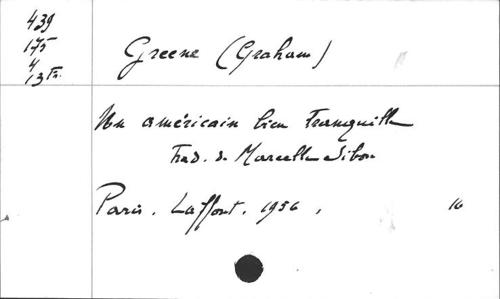 439
175
4
13 Fr.
Greene (Graham)
Un américain bien tranquille
Trad. de Marcelle Sibon
Paris. Laffont. 1956,
16